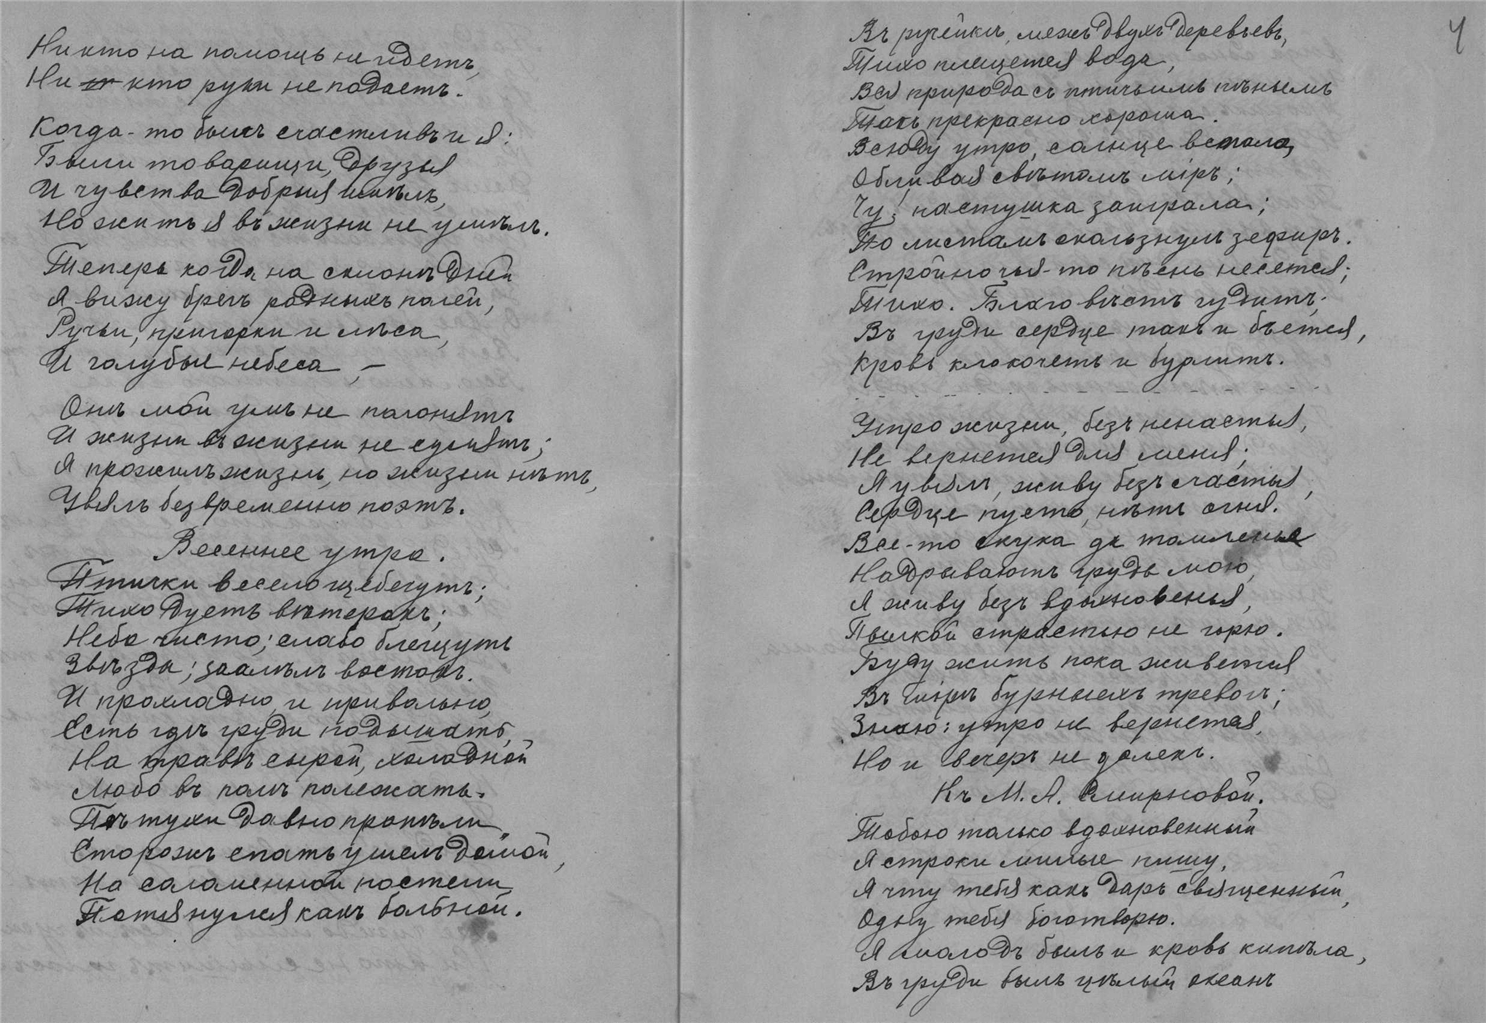 Никто на помощь не идетъ,
Ни кто руки не подаетъ.
Когда-то былъ счастливъ и я:
Были товарищи, друзья
И чувства добрыя имѣлъ,
Но жить я въ жизни не умѣлъ.
Теперь когда на склонѣ дней
Я вижу брегъ родныхъ полей,
Ручьи, пригорки и лѣса,
И голубые небеса, –
Онѣ мой умъ не полонятъ
И жизни въ жизни не сулятъ;
Я прожилъ жизнь, но жизни нѣтъ,
Увялъ безвременно поэтъ.
Весеннее утро.
Птички весело щебечутъ;
Тихо дуетъ вѣтерокъ;
Небо чисто; слабо блещутъ
Звѣзды; заалѣлъ востокъ.
И прохладно, и привольно,
Есть гдѣ груди подышать,
На травѣ сырой, холадной
Любо въ полѣ полежать.
Пѣтухи давно пропѣли
Сторожъ спать ушелъ домой,
На саламенной постели
Потянулся какъ больной.
4
Въ ручейкѣ, межъ двухъ деревьевъ,
Тихо плещется вода,
Вся природа съ птичьимъ пѣньемъ
Такъ прекрасно хороша.
Всюду утро, солнце встало,
Обливая свѣтомъ міръ;
Чу, пастушка заиграла;
По листамъ скользнулъ зефиръ.
Стройно чья-то пѣснь несется;
Тихо. Благовѣстъ гудитъ;
Въ груди сердце такъ и бьется,
Кровь клокочетъ и бурлитъ.
Утро жизни, безъ ненастья,
Не вернется для меня;
Я увялъ, живу безъ счастья,
Сердце пусто, нѣтъ огня.
Все-то скука да томленье
Надрываютъ грудь мою,
Я живу безъ вдохновенья,
Пылкой страстью не горю.
Буду жить пока живется
Въ мірѣ бурныхъ тревогъ;
Знаю: утро не вернется,
Но и вечеръ не далекъ.
Къ М. А. Смирновой.
Тобою только вдохновенный
Я строки милые пишу,
Я чту тебя какъ даръ священный,
Одну тебя боготворю.
Я молодъ былъ и кровь кипѣла,
Въ груди былъ цѣлый океанъ